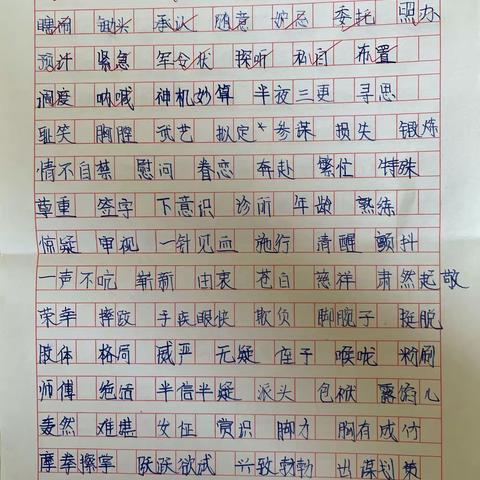 瞎闹 锄头 承认 随意 妒忌 委托 照办
预计 紧急 军令状 探听 私自 布置
调度 呐喊 神机妙算 半夜三更 寻思
耻笑 胸膛 武艺 拟定 参谋 损失 锻炼
情不自禁 慰问 眷恋 奔赴 繁忙 特殊
尊重 签字 下意识 诊所 年龄 熟练
惊疑 审视 一针见血 施行 清醒 颤抖
一声不吭 崭新 由衷 苍白 慈祥 肃然起敬
荣幸 摔跤 手疾眼快 欺负 脚腕子 挺脱
肢体 格局 威严 无疑 喉咙 粉刷
师傅 绝活 半信半疑 派头 包袱 露馅儿
轰然 难堪 女怔 赏识 脚力 胸有成竹
摩拳擦掌 跃跃欲试 兴致勃勃 出谋划策